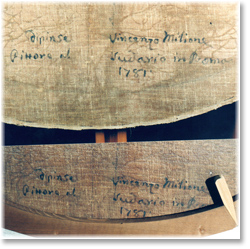 Dipinse Vincenzo Milione
Pittore al Sudario in Roma
1787
Dipinse Vincenzo Milione
Pittore al Sudario in R
1787